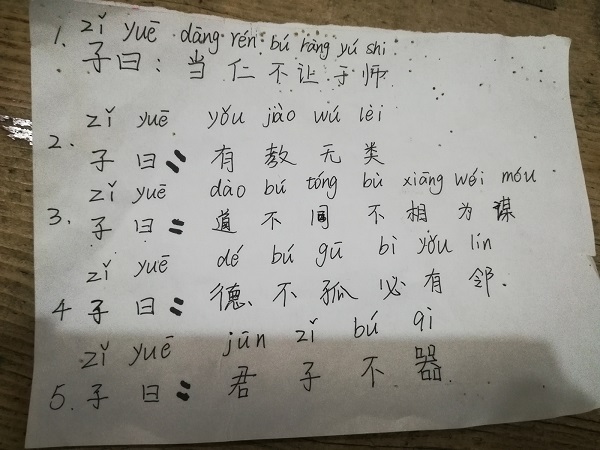 zǐ yuē dāng rén bú ràng yú shī
1. 子曰: 当仁不让于师
zǐ yuē yǒu jiào wú lèi
2. 子曰: 有教无类
zǐ yuē dào bú tóng bù xiāng wéi móu
3. 子曰: 道不同不相为谋
zǐ yuē dé bú gū bì yǒu lín
4 子曰: 德不孤必有邻.
zǐ yuē jūn zǐ bú qì
5. 子曰: 君子不器.